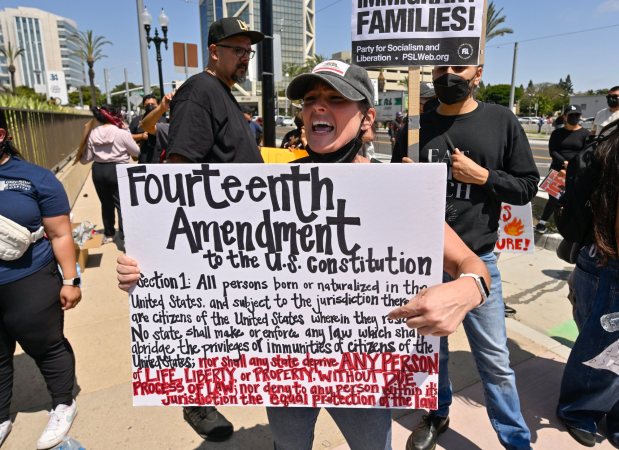 IMMIGRANT
FAMILIES!
Party for Socialism and
Liberation • PSLWeb.org
PSL
Fourteenth
Amendment
to the U.S. Constitution
Section 1: All persons born or naturalized in the
United States, and subject to the jurisdiction there
are citizens of the United States wherein they res
No state shall make or enforce any law which shall
abridge the privileges of immunities of citizens of the
United States; nor shall any state deprive ANY PERSON
of LIFE, LIBERTY, or PROPERTY, WITHOUT DUE
PROCESS OF LAW; nor deny to any person within its
Jurisdiction the Equal protection of the law